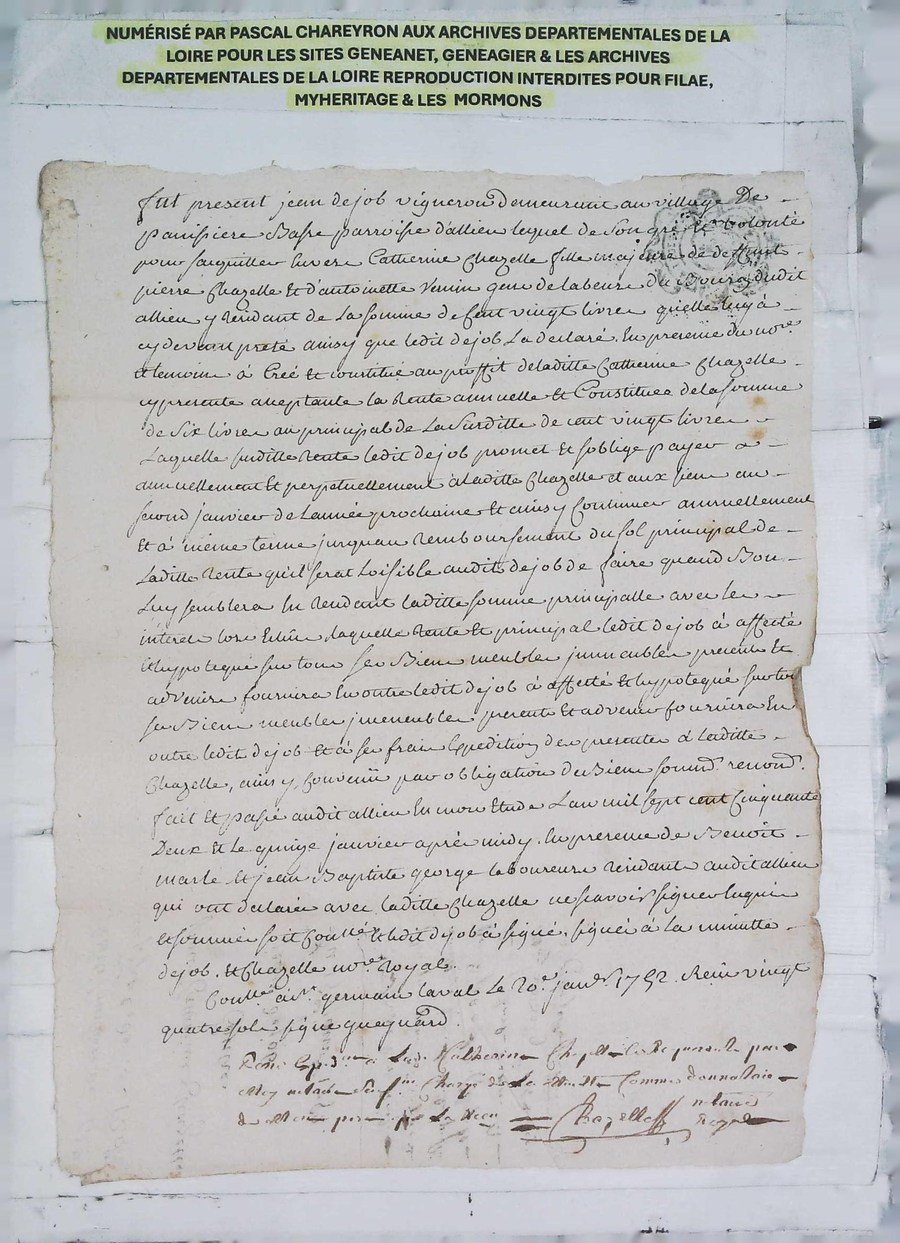 NUMÉRISÉ PAR PASCAL CHAREYRON AUX ARCHIVES DEPARTEMENTALES DE LA
LOIRE POUR LES SITES GENEANET, GENEAGIER & LES ARCHIVES
DEPARTEMENTALES DE LA LOIRE REPRODUCTION INTERDITES POUR FILAE,
MYHERITAGE & LES MORMONS
fut present jean dejob vigneron demeurant au village De
panissiere Basse parroisse d'allieu lequel de son gré et volonté
pour sacquitter envers Catherine Chazelle fille majeure de deffunt
pierre Chazelle et d'antoinette gens de labeur du Bourg dudit
allieu y residant de la somme de Cent vingt livres quelle luy à
cy devant presté ainsy que ledit dejob La declaré En presence du nore
et temoins à Créé et constitué au proffit de laditte Catherine Chazelle
cy presente acceptante la Rente annuelle et Constituee de la somme
de Six livres au principal de La Susditte de cent vingt livres
Laquelle susditte Rente ledit dejob promet et soblige payer
annuellement et perpetuellement à laditte Chazelle et aux siens au
second janvier de Lannée prochaine et ainsy Continuer annuellement
Et à même terme jusquau Remboursement du sol principal de
Laditte Rente quil serat Loisible audit dejob de faire quand Bon
Luy semblera En Rendant laditte somme principalle avec les
interets lors laquelle Rente et principal ledit dejob à affecté
et hypotequé sur tous ses Biens meubles immeubles presents et
advenirs fournira En outre ledit dejob à affecté et hypotequé sur tous
ses Biens meubles jmmeubles presents et advenir fournira En
outre ledit dejob et à ses frais Expedition des presentes à laditte
Chazelle, ainsy Convenu par obligation de Biens soumis. renond.
fait et passé audit allieu En mon Etude Lan mil sept cent Cinquante
Deux et Le quinze janvier après midy. En presence de Benoit
marle et jean Baptiste george laboureurs Residants audit allieu
qui ont declarés avec laditte Chazelle ne scavoir signer Enquis
et sommés soit Conllé et ledit dejob à signé. signé à la minutte
dejob. et Chazelle nore Royal.
Conllé à St germain laval le 20e janr 1752. Reçu vingt
quatre sols signé gueynard.
Catherine Chazelle
Comme donnataire
Chazelle notaire
Royal